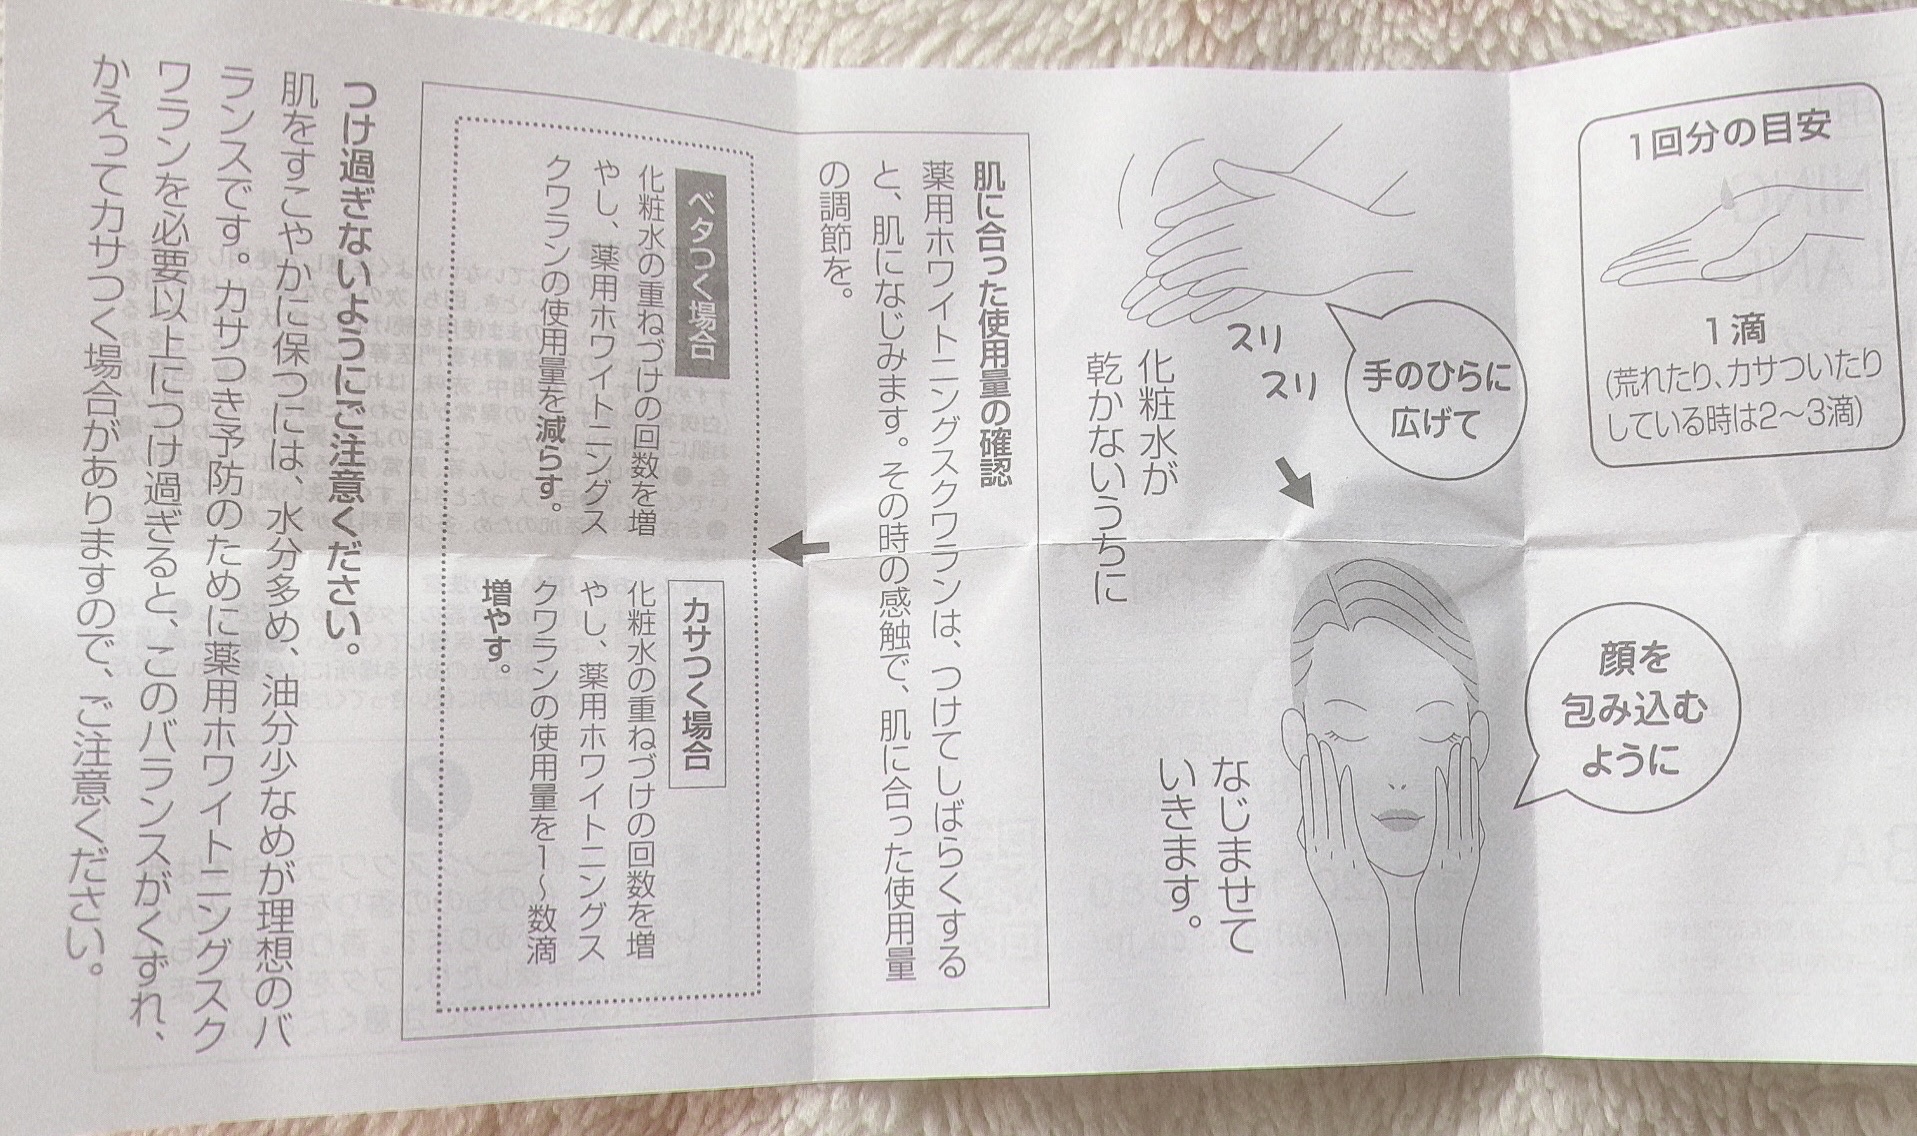 1回分の目安
1滴
(荒れたり、カサついたり
している時は2〜3滴)
手のひらに
広げて
スリ
スリ
化粧水が
乾かないうちに
顔を
包み込む
ように
なじませて
いきます。
肌に合った使用量の確認
薬用ホワイトニングスクワランは、つけてしばらくする
と、肌になじみます。その時の感触で、肌に合った使用量
の調節を。
ベタつく場合
化粧水の重ねづけの回数を増
やし、薬用ホワイトニングス
クワランの使用量を減らす。
カサつく場合
化粧水の重ねづけの回数を増
やし、薬用ホワイトニングス
クワランの使用量を1〜数滴
増やす。
つけ過ぎないようにご注意ください。
肌をすこやかに保つには、水分多め、油分少なめが理想のバ
ランスです。カサつき予防のために薬用ホワイトニングスク
ワランを必要以上につけ過ぎると、このバランスがくずれ、
かえってカサつく場合がありますので、ご注意ください。